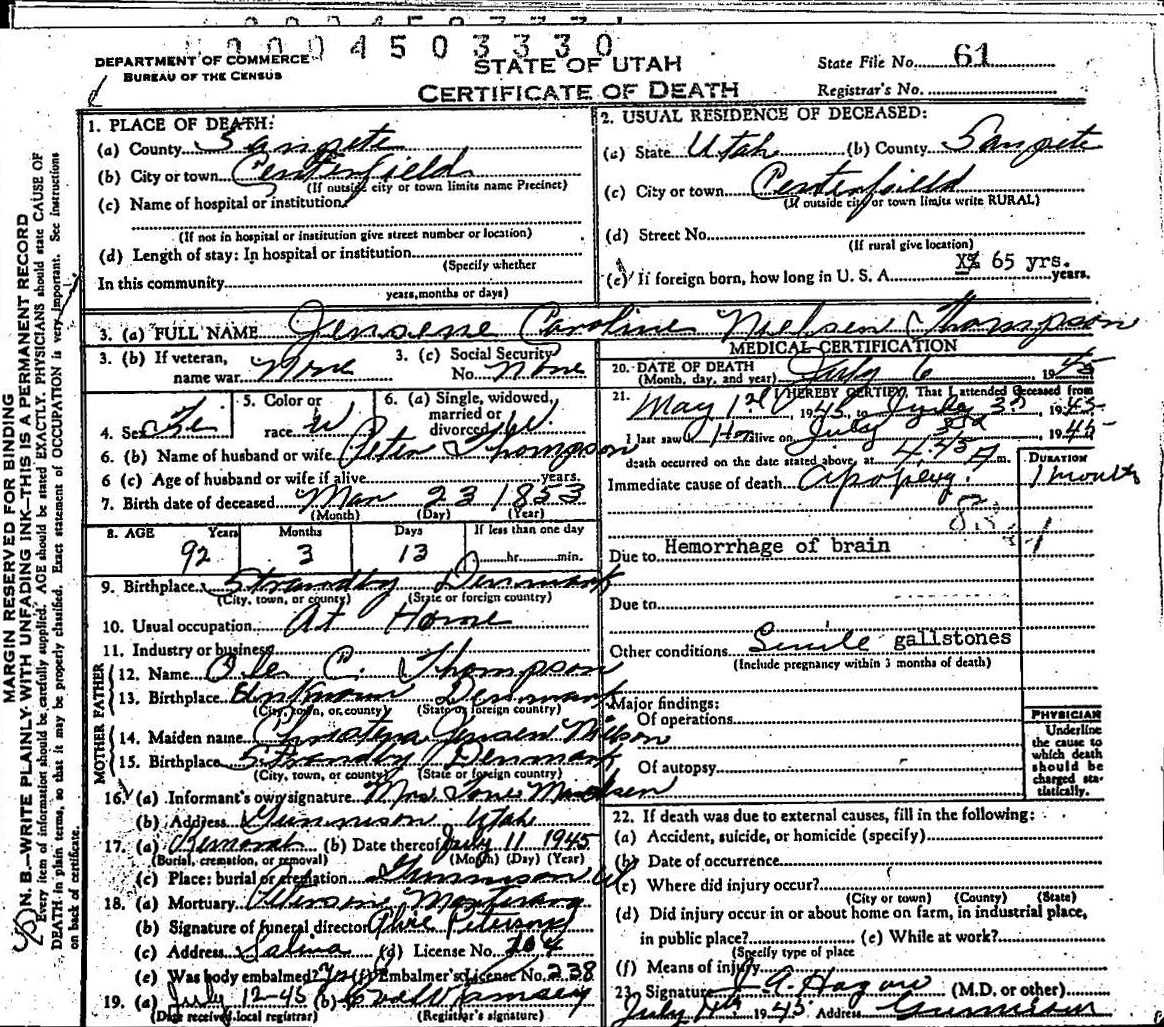 0004503330
DEPARTMENT OF COMMERCE
BUREAU OF THE CENSUS
STATE OF UTAH
CERTIFICATE OF DEATH
State File No. 61
Registrar's No.
MARGIN RESERVED FOR BINDING
N. B.—WRITE PLAINLY WITH UNFADING INK—THIS IS A PERMANENT RECORD
Every item of information should be carefully supplied. AGE should be stated EXACTLY. PHYSICIANS should state CAUSE OF
DEATH in plain terms, so that it may be properly classified. Exact statement of OCCUPATION is very important. See instructions
on back of certificate.
1. PLACE OF DEATH:
(a) County Sanpete
(b) City or town Centerfield
(If outside city or town limits name Precinct)
(c) Name of hospital or institution
(If not in hospital or institution give street number or location)
(d) Length of stay: In hospital or institution
(Specify whether
In this community
years, months or days)
2. USUAL RESIDENCE OF DECEASED:
(a) State Utah (b) County Sanpete
(c) City or town Centerfield
(If outside city or town limits write RURAL)
(d) Street No.
(If rural give location)
(e) If foreign born, how long in U. S. A. 65 yrs. years.
3. (a) FULL NAME Jensene Caroline Nielsen Thompson
3. (b) If veteran, name war None
3. (c) Social Security No. None
4. Sex Fe
5. Color or race W
6. (a) Single, widowed, married or divorced W.
6. (b) Name of husband or wife Peter Thompson
6 (c) Age of husband or wife if alive years.
7. Birth date of deceased Mar 23 1853
(Month) (Day) (Year)
8. AGE Years Months Days If less than one day
92 3 13 hr. min.
9. Birthplace Strandby Denmark
(City, town, or county) (State or foreign country)
10. Usual occupation At Home
11. Industry or business
FATHER
12. Name Ole C. Thompson
13. Birthplace Unknown Denmark
(City, town, or county) (State or foreign country)
MOTHER
14. Maiden name Christena Jensen Nilson
15. Birthplace Strandby Denmark
(City, town, or county) (State or foreign country)
16. (a) Informant's own signature Mrs
(b) Address Gunnison Utah
17. (a) Removal (b) Date thereof July 11 1945
(Burial, cremation, or removal) (Month) (Day) (Year)
(c) Place: burial or cremation Gunnison
18. (a) Mortuary
(b) Signature of funeral director
(c) Address Salina (d) License No. 204
(e) Was body embalmed? Yes (f) Embalmer's License No. 238
19. (a) July 12-45 (b) Ramsey
(Date received local registrar) (Registrar's signature)
MEDICAL CERTIFICATION
20. DATE OF DEATH
(Month, day, and year) July 6 1945
21. I HEREBY CERTIFY, That I attended deceased from
May 1st 1945, to July 3rd, 1945
I last saw Her alive on July 3rd, 1945
death occurred on the date stated above, at 4:45 A m.
DURATION
Immediate cause of death Apoplexy. 1 month
Due to Hemorrhage of brain
Due to
Other conditions Senile gallstones
(Include pregnancy within 3 months of death)
Major findings:
Of operations
Of autopsy
PHYSICIAN
Underline
the cause to
which death
should be
charged sta-
tistically.
22. If death was due to external causes, fill in the following:
(a) Accident, suicide, or homicide (specify)
(b) Date of occurrence
(c) Where did injury occur?
(City or town) (County) (State)
(d) Did injury occur in or about home on farm, in industrial place,
in public place? (e) While at work?
(Specify type of place
(f) Means of injury
23. Signature J. A. Hagan (M.D. or other)
July 1945 Address Gunnison